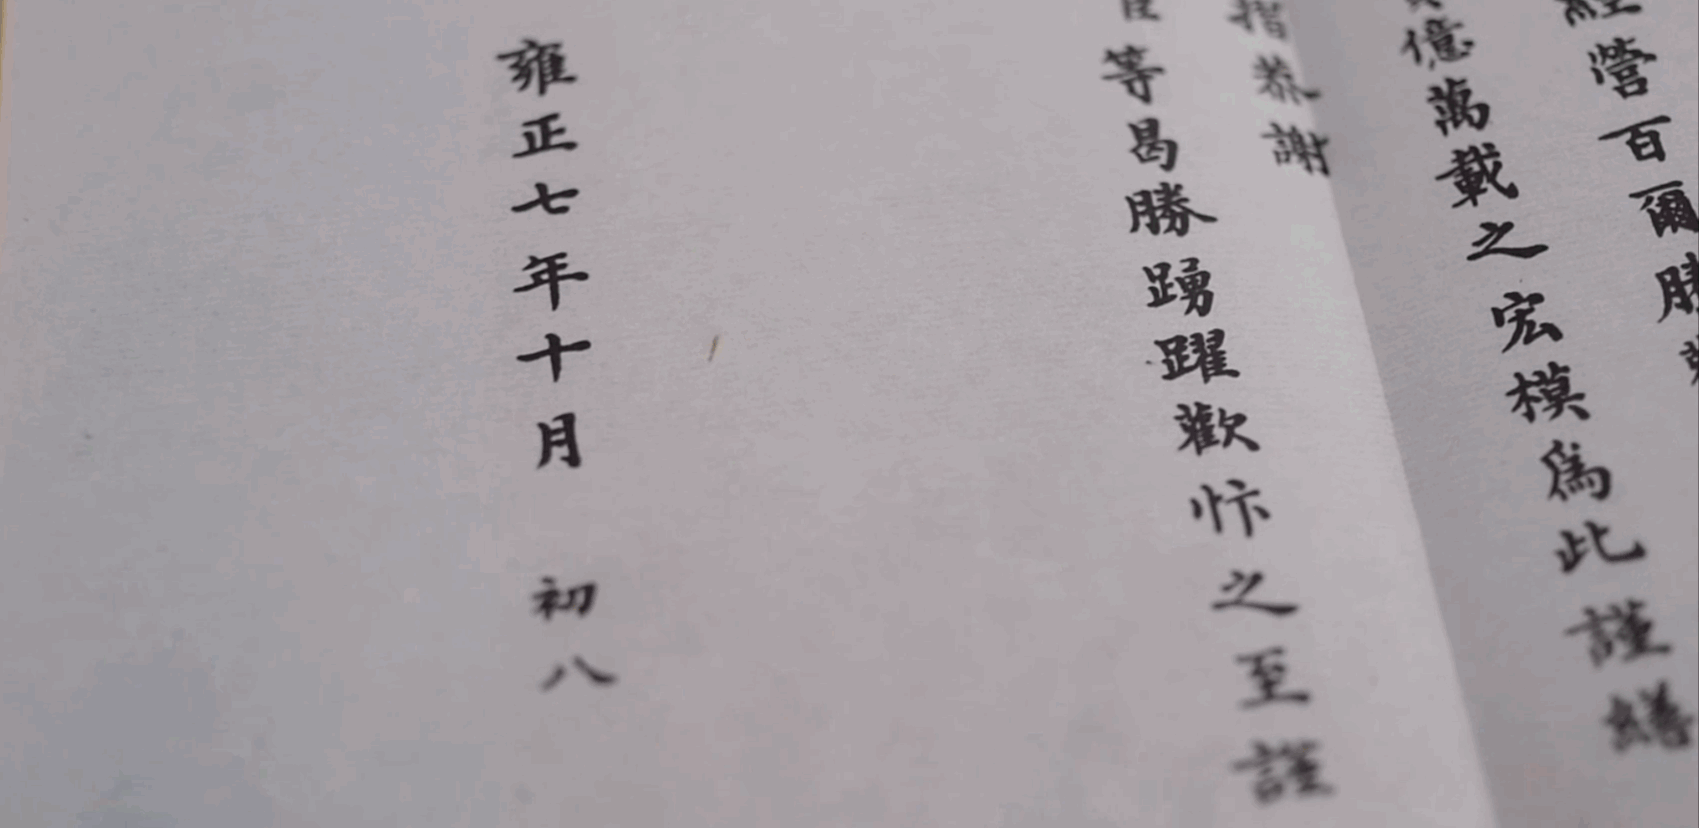 營百爾勝
億萬載之宏模爲此謹繕
摺恭謝
等曷勝踴躍歡忭之至謹
雍正七年十月 初八